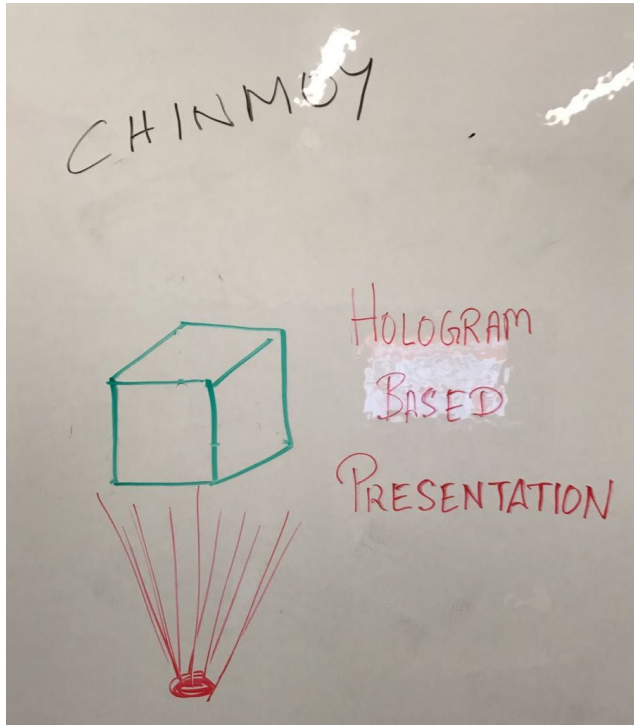 CHINMOY
HOLOGRAM
BASED
PRESENTATION